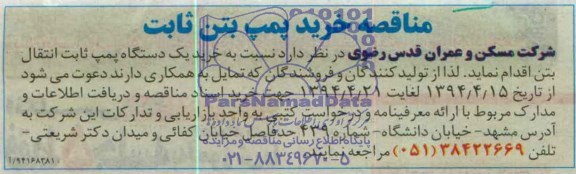 مناقصه خرید پمپ بتن ثابت
شرکت مسکن و عمران قدس رضوی در نظر دارد نسبت به خرید یک دستگاه پمپ ثابت انتقال
بتن اقدام نماید. لذا از تولید کنندگان و فروشندگان که تمایل به همکاری دارند دعوت می شود
از تاریخ ۱۳۹۴/۴/۱۵ لغایت ۱۳۹۴/۴/۲۱ جهت خرید اسناد مناقصه و دریافت اطلاعات و
ParsNamadData
مدارک مربوط با ارائه معرفینامه و درخواست کتبی به واحد بازاریابی و تدارکات این شرکت به
آدرس مشهد- خیابان دانشگاه- شماره ۴۳۹ حدفاصل خیابان کفائی و میدان دکتر شریعتی-
پایگاه اطلاع رسانی مناقصه و مزایده
تلفن ۳۸۴۲۲۶۶۹ (۰۵۱) مراجعه نمایند.
۰۲۱-۸۸۳۴۹۶۷۰-۵
۹۴۱۶۸۳۸۱/آ